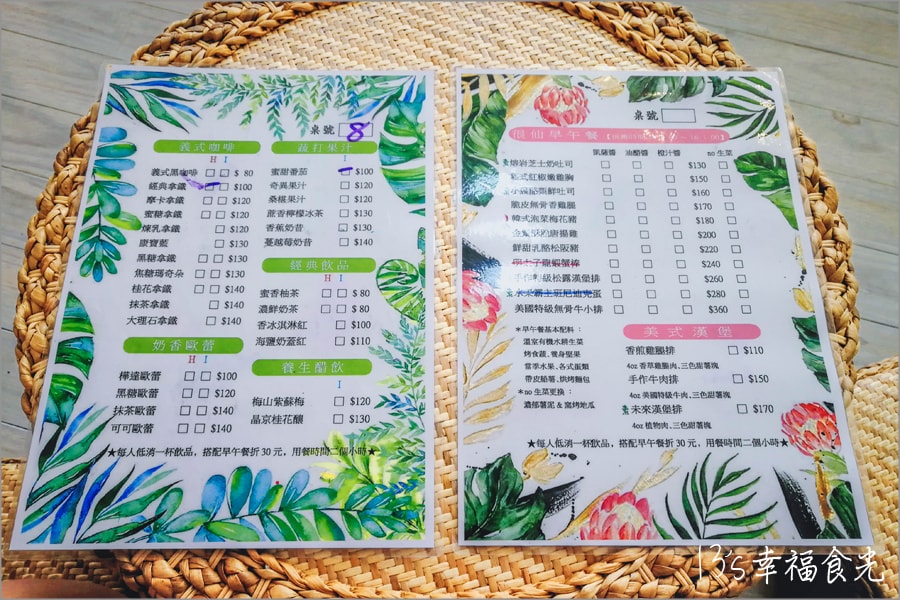 桌號 8
義式咖啡
H I
義式黑咖啡 □ □ $ 80
經典拿鐵 □ □ $100
摩卡拿鐵 □ □ $120
蜜糖拿鐵 □ □ $120
煉乳拿鐵 □ $120
康寶藍 □ $130
黑糖拿鐵 □ □ $130
焦糖瑪奇朵 □ □ $130
桂花拿鐵 □ □ $140
抹茶拿鐵 □ $140
大理石拿鐵 □ $140
奶香歐蕾
樺達歐蕾 □ □ $100
黑糖歐蕾 □ □ $120
抹茶歐蕾 □ □ $140
可可歐蕾 □ □ $140
蔬打果汁
I
蜜甜番茄 □ $100
奇異果汁 □ $120
桑椹果汁 □ $120
蔗香檸檬冰茶 □ $130
香蕉奶昔 □ $130
蔓越莓奶昔 □ $140
經典飲品
H I
蜜香柚茶 □ □ $ 80
濃鮮奶茶 □ □ $ 80
香冰淇淋紅 □ $100
海鹽奶蓋紅 □ $110
養生醋飲
I
梅山紫蘇梅 □ $120
晶京桂花釀 □ $130
★每人低消一杯飲品，搭配早午餐折 30 元，用餐時間二個小時★
桌號
很仙早午餐
凱薩醬 油醋醬 橙汁醬 no 生菜
熔岩芝士奶吐司 □ □ □ $130 □
紅椒嫩雞胸 □ □ □ $150 □
鮮吐司 □ □ □ $160 □
脆皮無骨香雞腿 □ □ □ $170 □
韓式泡菜梅花豬 □ □ □ $180 □
唐揚雞 □ □ □ $200 □
鮮甜乳酪松阪豬 □ □ □ $220 □
龍蝦蟹棒 □ □ □ $240 □
手作特級松露漢堡排 □ □ □ $260 □
未來霸王班尼迪克蛋 □ □ □ $280 □
美國特級無骨牛小排 □ □ □ $360 □
＊早午餐基本配料：
溫室有機水耕生菜
烤食蔬、養身堅果
當季水果、各式蛋類
帶皮鬆薯、烘烤麵包
＊no 生菜更換：
濃郁薯泥 & 窯烤地瓜
美式漢堡
香煎雞腿排 □ $110
4oz 香草雞腿肉、三色甜薯塊
手作牛肉排 □ $150
4oz 美國特級牛肉、三色甜薯塊
未來漢堡排 □ $170
4oz 植物肉、三色甜薯塊
★每人低消一杯飲品，搭配早午餐折 30 元，用餐時間二個小時★
13's幸福食光